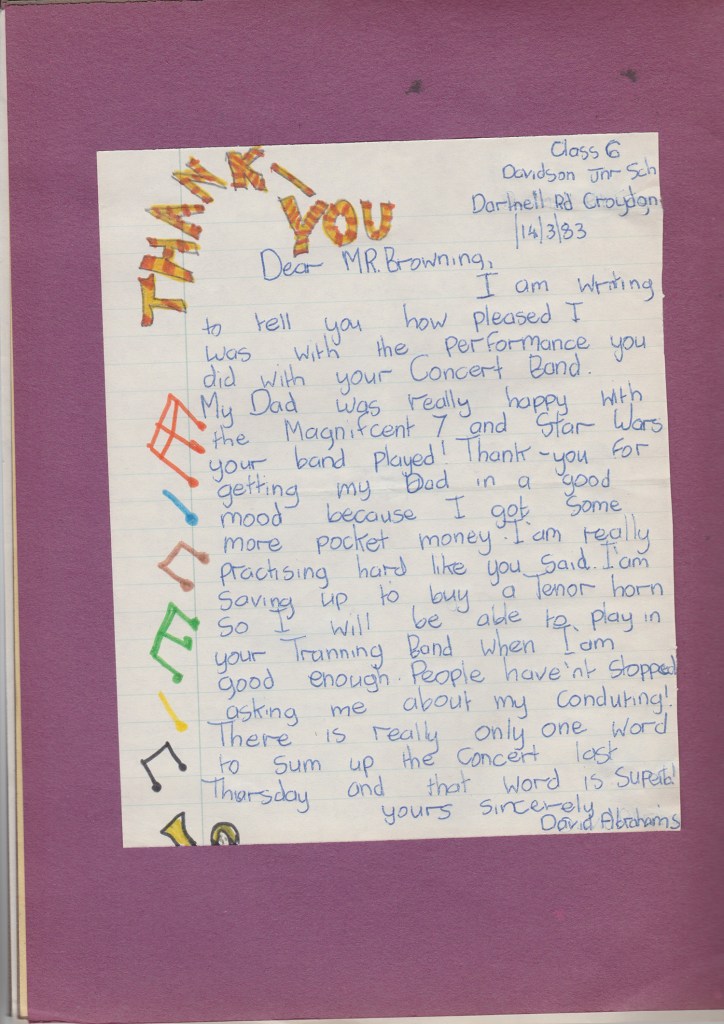 THANK-
YOU
Class 6
Davidson Jnr Sch
Dartnell Rd Croydon
14/3/83
Dear MR. Browning,
I am writing
to tell you how pleased I
was with the performance you
did with your Concert Band.
My Dad was really happy with
the Magnifcent 7 and Star Wars
your band played! Thank-you for
getting my Dad in a good
mood because I got some
more pocket money. I'am really
practising hard like you said. I'am
saving up to buy a Tenor horn
so I will be able to play in
your Tranning Band when I'am
good enough. People have'nt stopped
asking me about my conduting!
There is really only one word
to sum up the concert last
Thursday and that word is Superb!
yours sincerely
David Abrahams